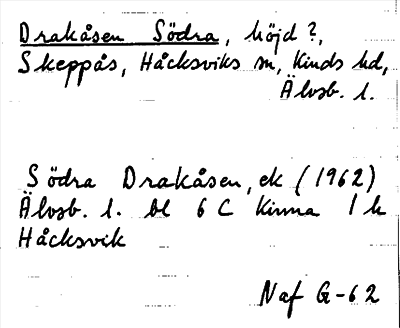 Drakåsen Södra, höjd ?,
Skeppås, Håcksviks sn, Kinds hd,
Älvsb. l.
Södra Drakåsen, ek (1962)
Älvsb. l. bl 6 C Kinna 1 h
Håcksvik
Naf G-62